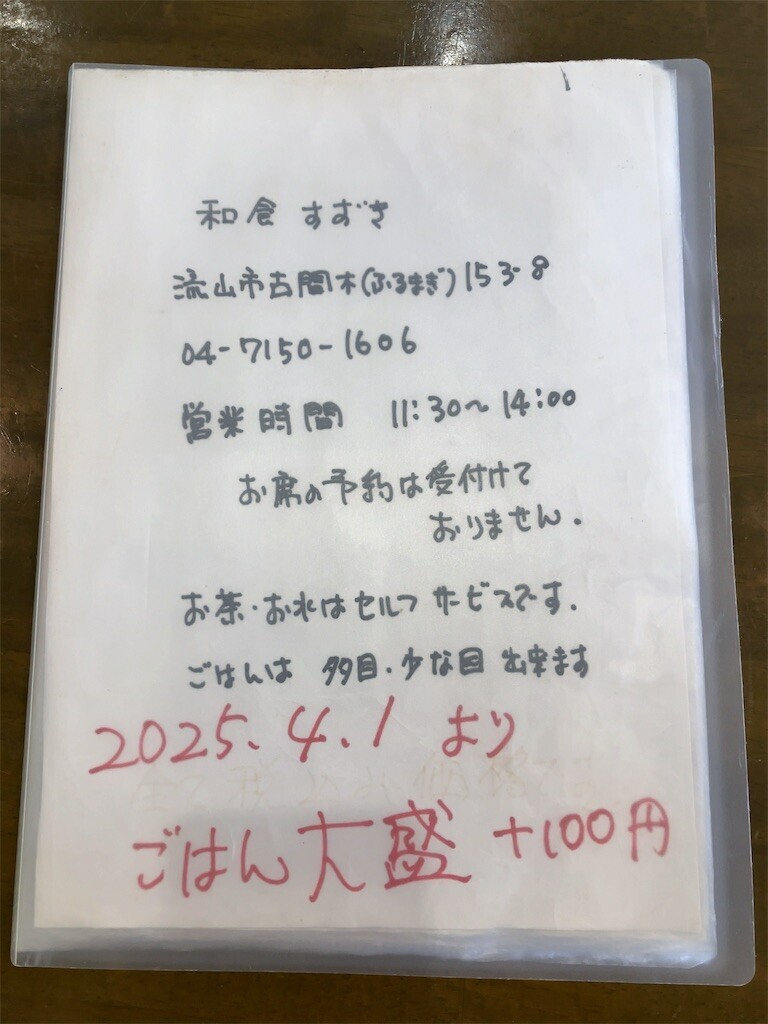 和食 すずき
流山市古間木(ふるまぎ)153-8
04-7150-1606
営業時間 11:30～14:00
お席の予約は受付けて
おりません.
お茶・お水はセルフサービスです.
ごはんは 多目・少な目 出来ます
2025.4.1 より
全て税込み価格です
ごはん大盛 +100円